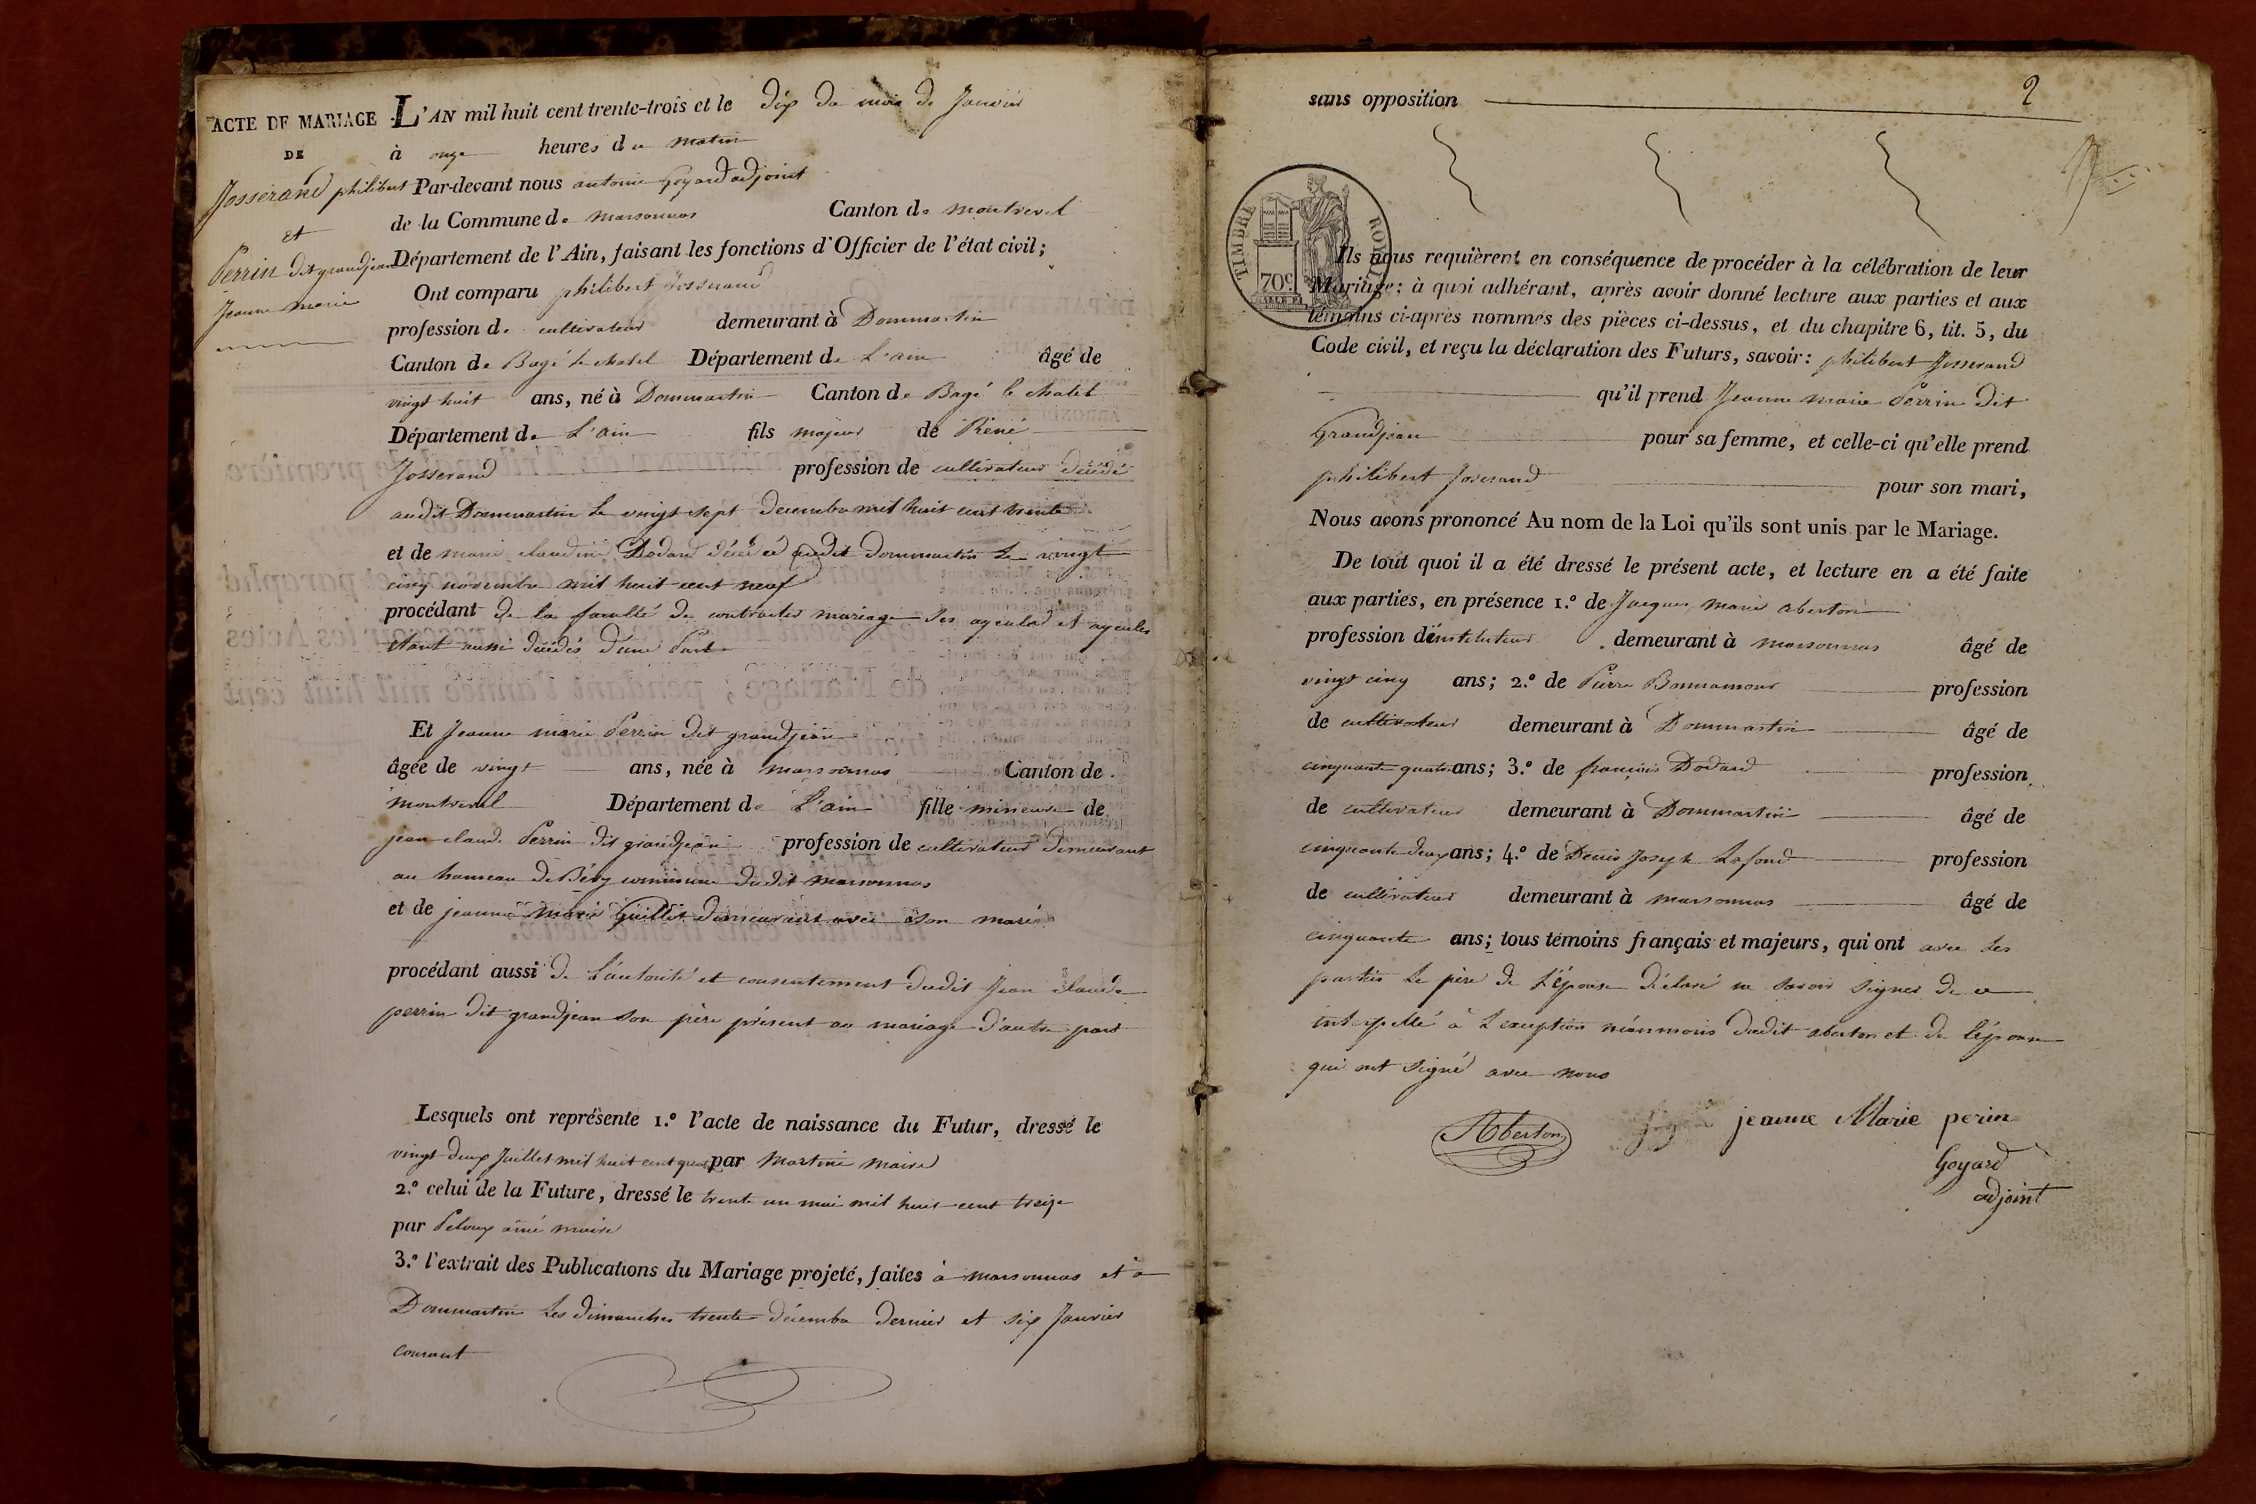 ACTE DE MARIAGE
DE
Josserand philibert
et
Perrin dit grandjean
Jeanne marie
L'AN mil huit cent trente-trois et le dix du mois de Janvier
à onze heures du matin
Par-devant nous antoine goyard adjoint
de la Commune de marsonnas Canton de montrevel
Département de l'Ain, faisant les fonctions d'Officier de l'état civil;
Ont comparu philibert Josserand
profession de cultivateur demeurant à Dommartin
Canton de Bagé le chatel Département de L'ain âgé de
vingt huit ans, né à Dommartin Canton de Bagé le chatel
Département de L'ain fils majeur de Réné
Josserand profession de cultivateur décédé
audit Dommartin le vingt sept decembre mil huit cent trente
et de marie claudine Dodard décédée audit dommartin le vingt
cinq novembre mil huit cent neuf
procédant de la faculté de contracter mariage ses ayeulx et ayeules
etant aussi décédés d'une Part
Et Jeanne marie Perrin dit grandjean
âgée de vingt ans, née à marsonnas Canton de
montrevel Département de L'ain fille mineure de
jean claude Perrin dit grandjean profession de cultivateur demeurant
au hameau de Béry commune dudit marsonnas
et de jeanne marie Guillet demeurant avec son mari
procédant aussi de L'autorité et consentement dudit Jean claude
perrin dit grandjean son père présent au mariage d'autre part
Lesquels ont représente 1.º l'acte de naissance du Futur, dressé le
vingt deux Juillet mil huit cent quatre par Martine maire
2.º celui de la Future, dressé le trente un mai mil huit cent treize
par Peloux ainé maire
3.º l'extrait des Publications du Mariage projeté, faites à marsonnas et à
Dommartin Les dimanches trente décembre dernier et six Janvier
courant
2
sans opposition
TIMBRE ROYAL
70c.
Ils nous requièrent en conséquence de procéder à la célébration de leur
Mariage; à quoi adhérant, après avoir donné lecture aux parties et aux
témoins ci-après nommés des pièces ci-dessus, et du chapitre 6, tit. 5, du
Code civil, et reçu la déclaration des Futurs, savoir: philibert Josserand
qu'il prend Jeanne marie Perrin dit
Grandjean pour sa femme, et celle-ci qu'elle prend
philibert Josserand pour son mari,
Nous avons prononcé Au nom de la Loi qu'ils sont unis par le Mariage.
De tout quoi il a été dressé le présent acte, et lecture en a été faite
aux parties, en présence 1.º de Jacques marie aberton
profession d'instituteur demeurant à marsonnas âgé de
vingt cinq ans; 2.º de Pierre Bonnamour profession
de cultivateur demeurant à Dommartin âgé de
cinquante quatre ans; 3.º de françois Dodard profession
de cultivateur demeurant à Dommartin âgé de
cinquante deux ans; 4.º de Denis Joseph Lafond profession
de cultivateur demeurant à marsonnas âgé de
cinquante ans; tous témoins français et majeurs, qui ont avec les
parties Le père de L'épouse déclaré ne savoir signer de ce
interpellé à L'exception néanmoins dudit aberton et de l'épouse
qui ont signé avec nous
Aberton
jeanne Marie perin
Goyard
adjoint